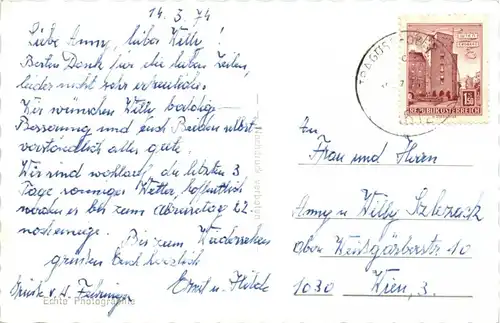 14.3.74
Liebe Anny, lieber Willy!
Besten Dank für die lieben Zeilen,
leider nicht sehr erfreulich.
Wir wünschen Willy baldige
Besserung und euch Beiden selbst-
verständlich alles gute.
Wir sind wohlauf, die letzten 3
Tage sonniges Wetter, hoffentlich
werden es bis zum 22.
noch einige. Bis zum Wiedersehen
grüßen Euch herzlich
Emil u. Hilde
Echte Photographie
Nachdruck verboten
REPUBLIK ÖSTERREICH
An
Frau und Herrn
Anny u Willy
Obere Weißgärberstr 10
1030 Wien, 3.